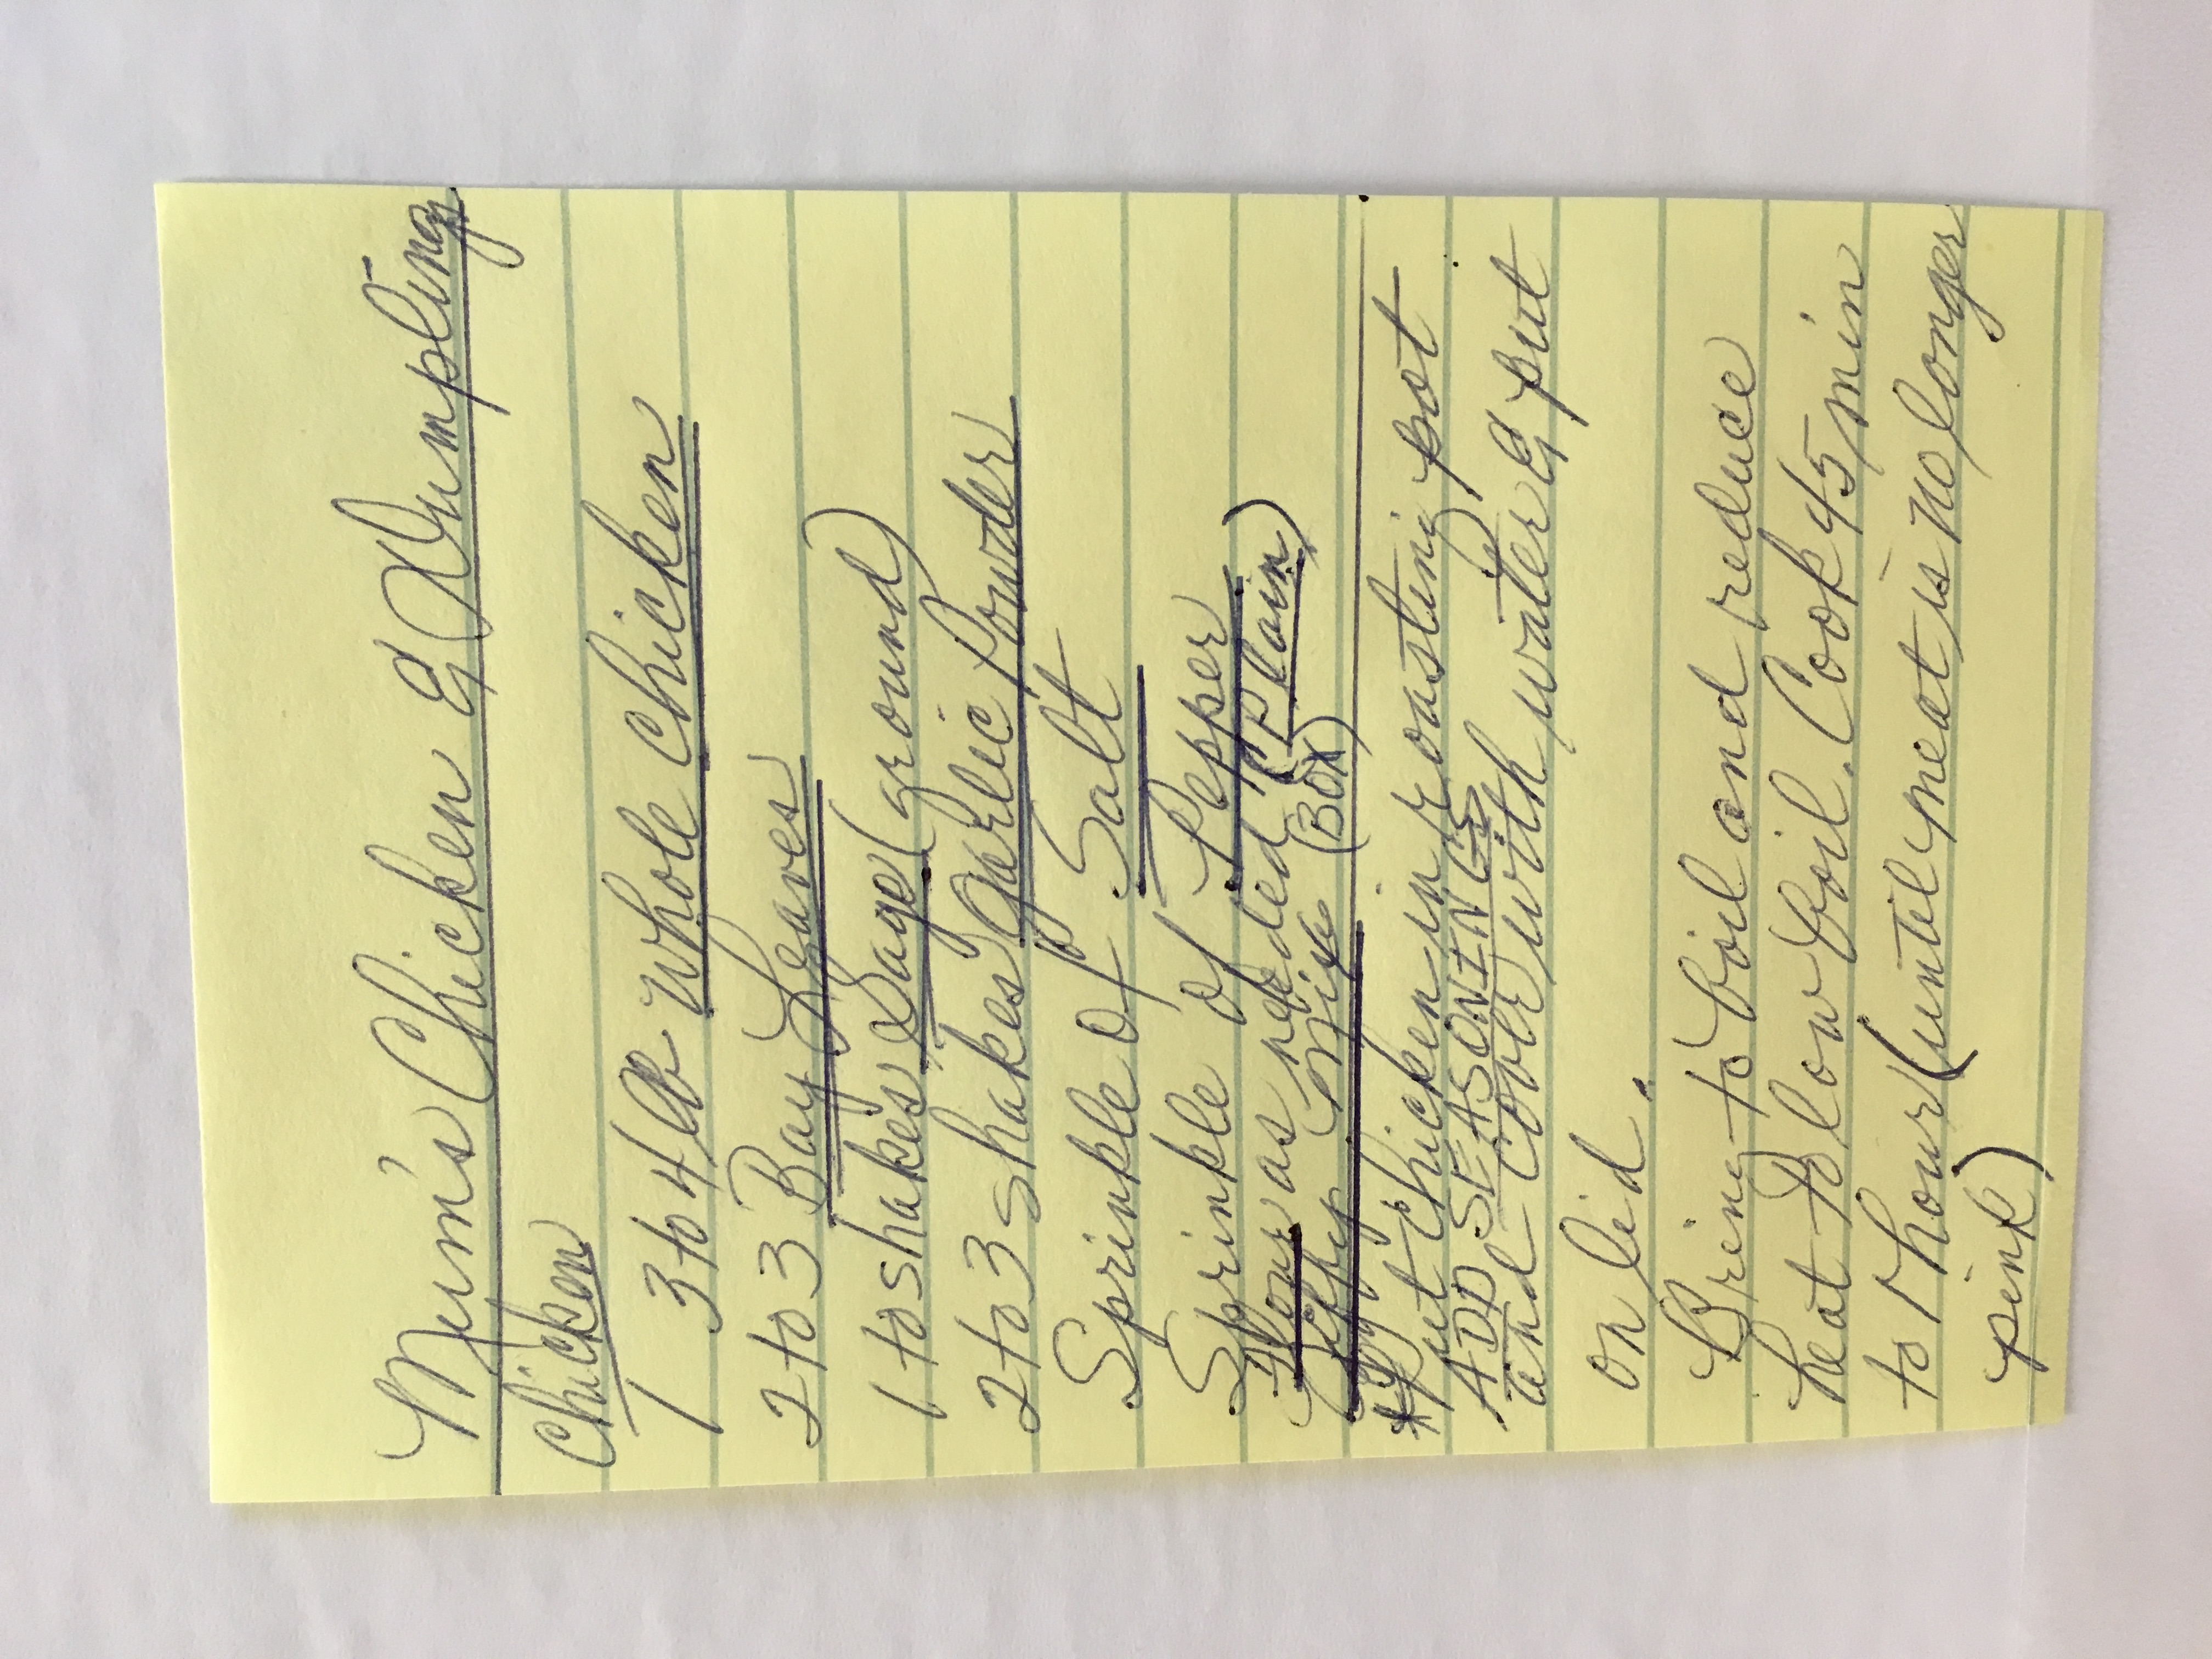 Mum's Chicken & Dumplings
Chicken
1 3 to 4 lb whole chicken
2 to 3 Bay Leaves
1 to shakes Sage (ground)
2 to 3 shakes Garlic Powder
Sprinkle of Salt
Sprinkle of Pepper
Flour as needed (Plain)
Jiffy mix (BOX)
*Put chicken in roasting pot
ADD SEASONINGS
and cover with water & put
on lid.
Bring to boil and reduce
heat to low boil. Cook 45 min
to 1 hour (until meat is no longer
pink)